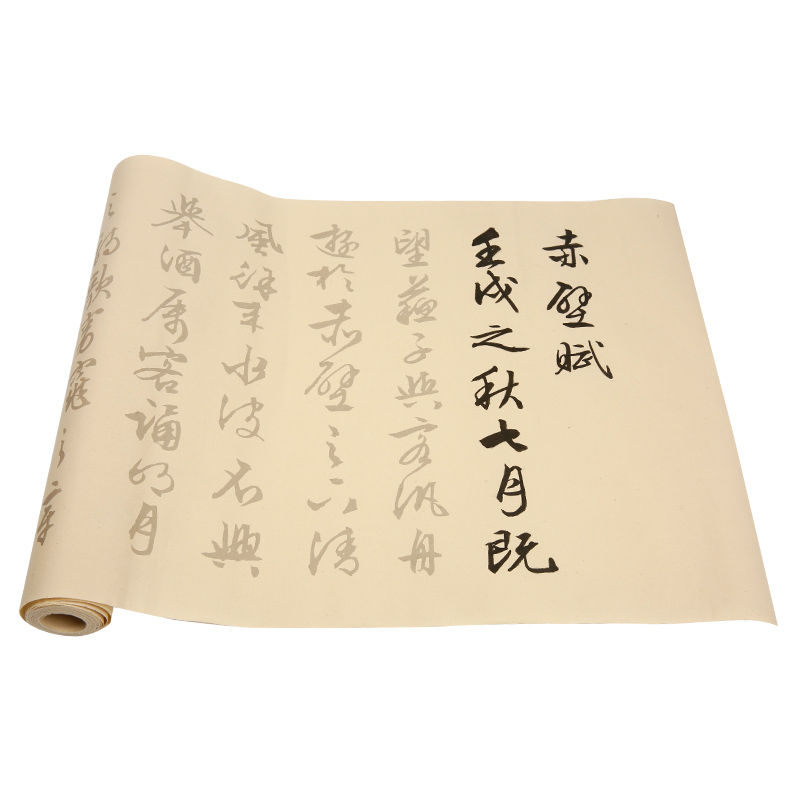 赤壁賦
壬戌之秋七月既
望蘇子與客汎舟
遊於赤壁之下清
風徐來水波不興
舉酒屬客誦明月
之詩歌窈窕之章